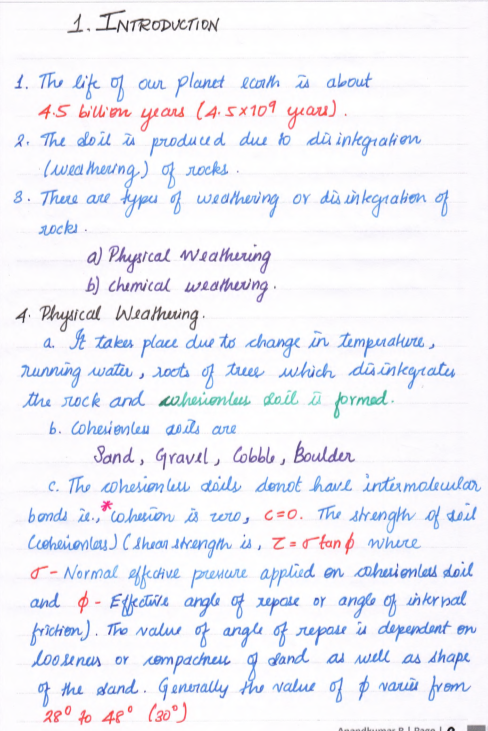 1. INTRODUCTION
1. The life of our planet earth is about
4.5 billion years (4.5x10⁹ years).
2. The soil is produced due to disintegration
(weathering) of rocks.
3. There are types of weathering or disintegration of
rocks.
a) Physical Weathering
b) chemical weathering.
4. Physical Weathering.
a. It takes place due to change in temperature,
running water, roots of trees which disintegrates
the rock and cohesionless soil is formed.
b. Cohesionless soils are
Sand, Gravel, Cobble, Boulder
c. The cohesionless soils donot have intermolecular
bonds ie., *cohesion is zero, C=0. The strength of soil
(cohesionless) (shear strength is, τ = σ tan ϕ where
σ - Normal effective pressure applied on cohesionless soil
and ϕ - Effective angle of repose or angle of internal
friction). The value of angle of repose is dependent on
looseness or compactness of sand as well as shape
of the sand. Generally the value of ϕ varies from
28° to 48° (30°)
Anandkumar R | Page | 0